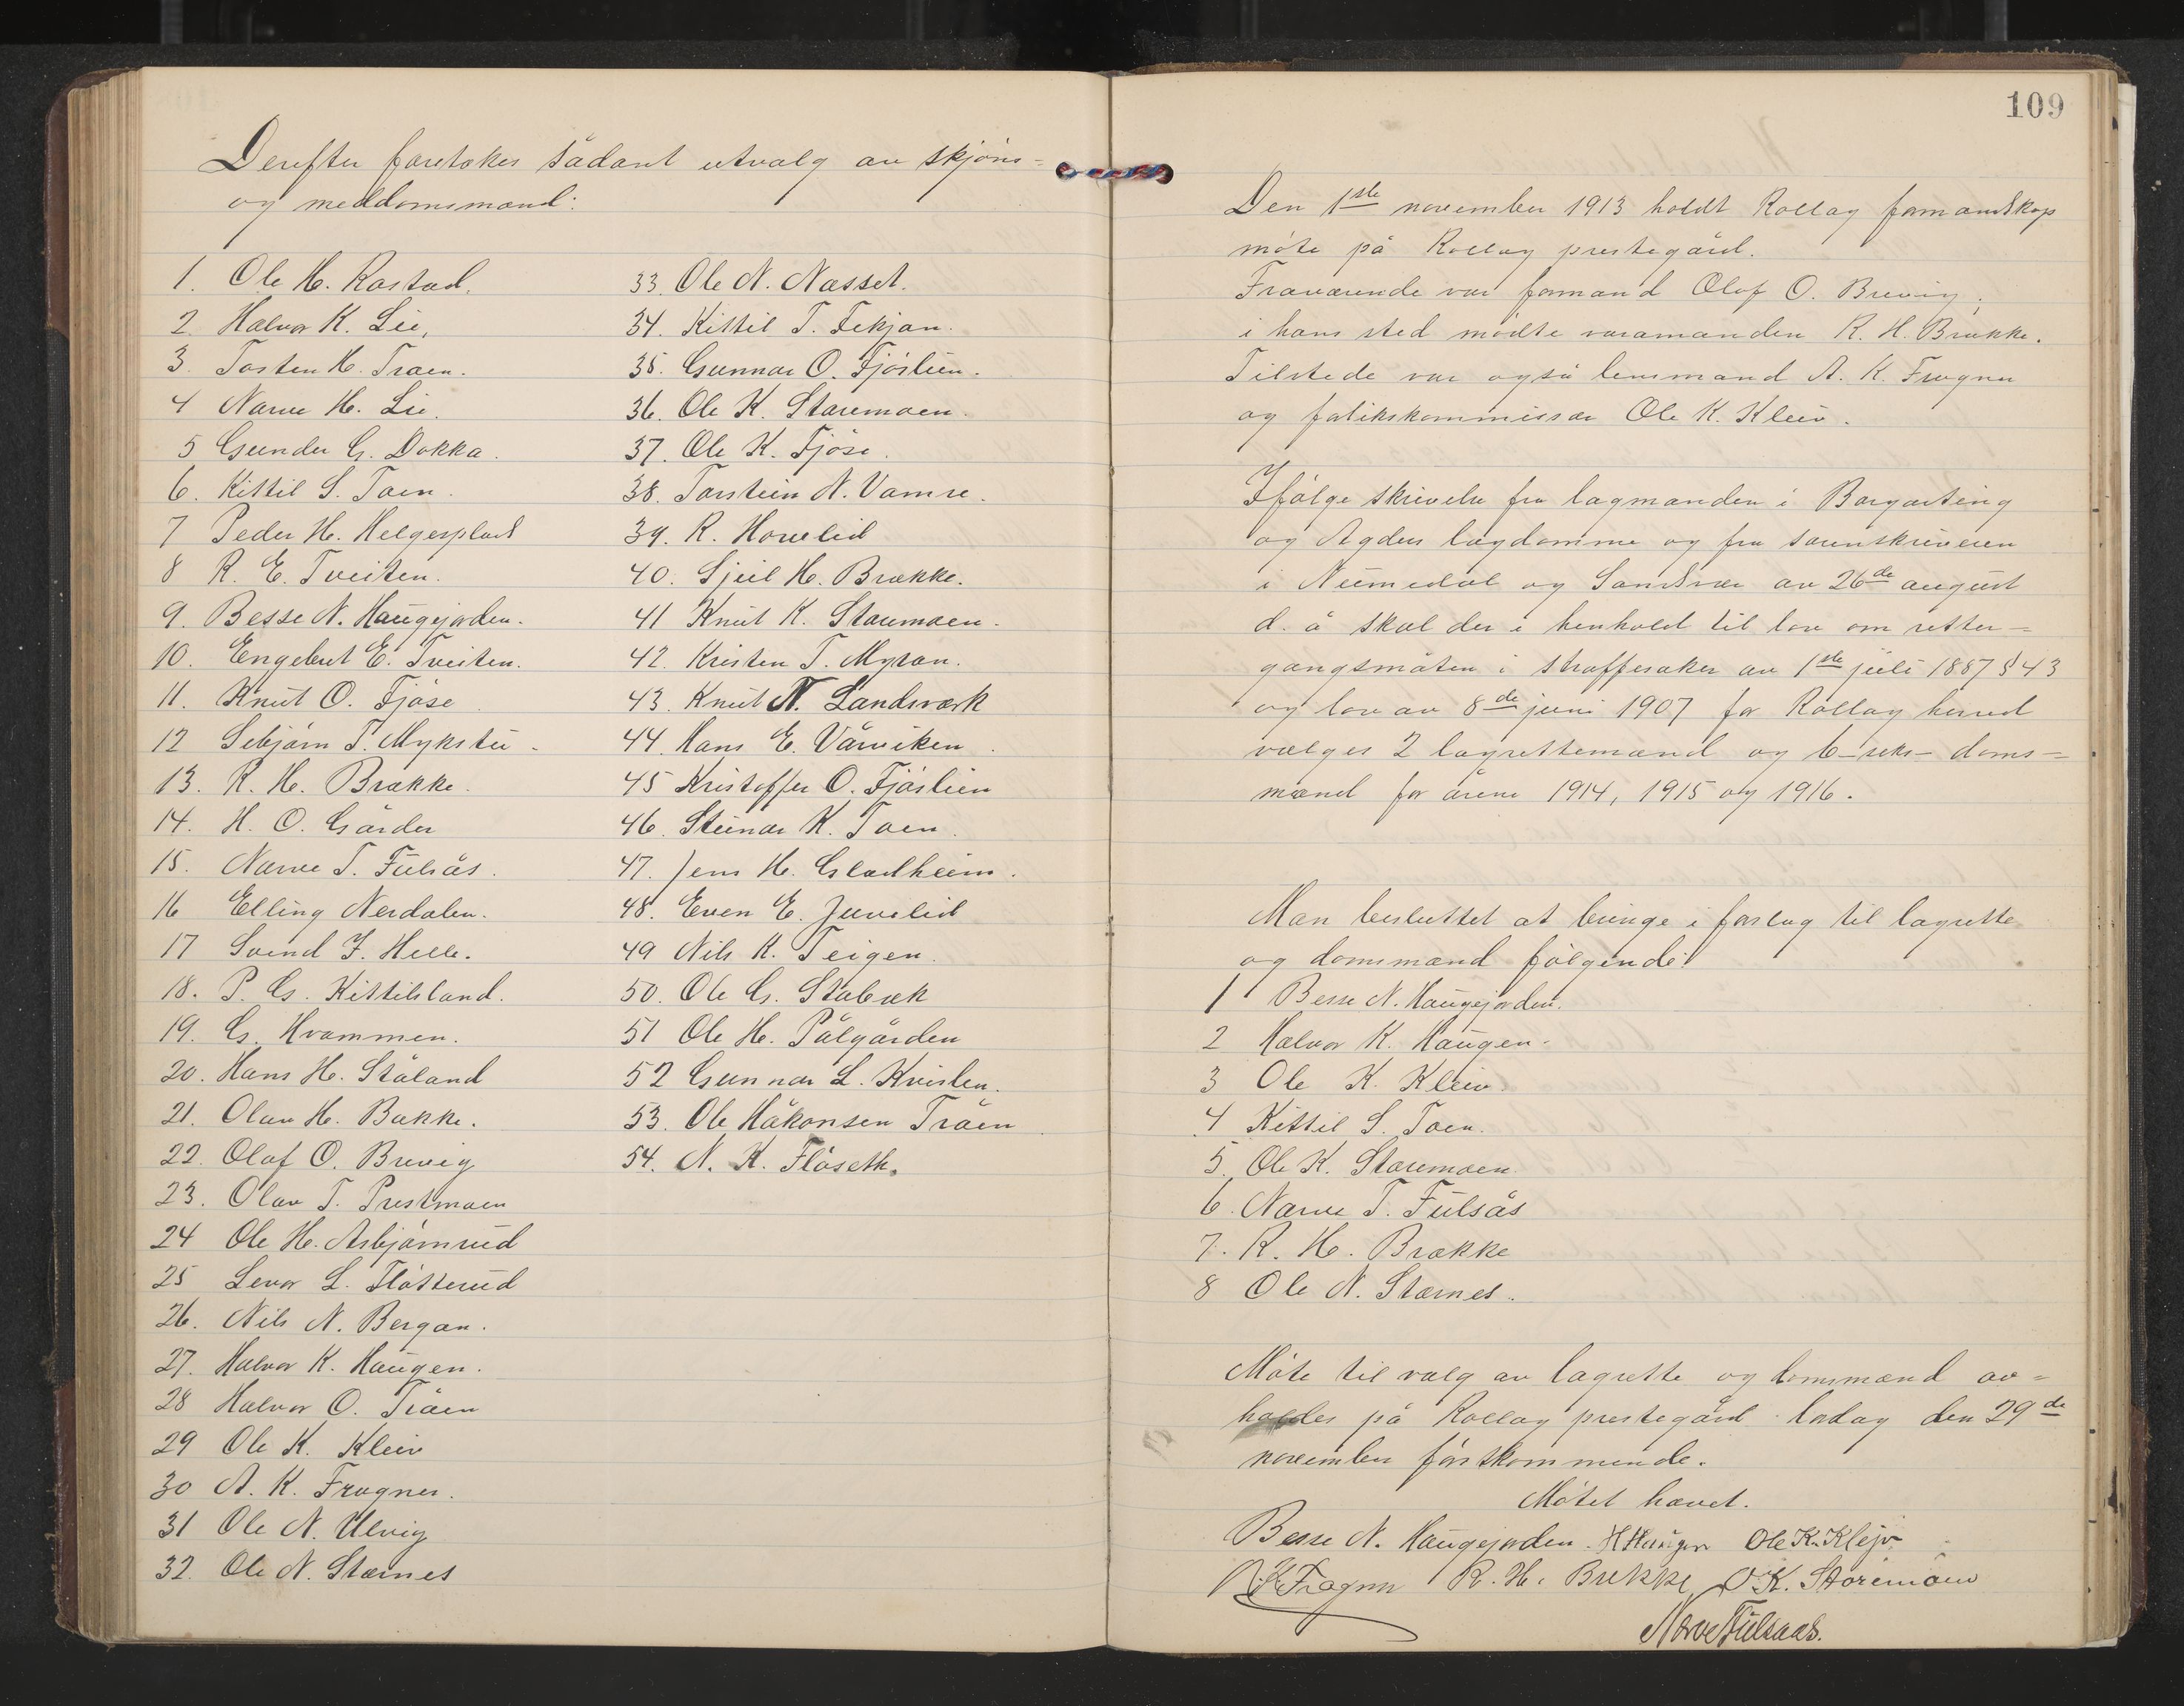 Derefter foretokes sådant utvalg av skjøns-
og meddomsmænd:
1. Ole H. Rastad.
2. Halvor K. Lie,
3. Tosten H. Traen.
4 Narve H. Lie.
5 Gunder G. Dokka.
6. Kittil S. Toen.
7 Peder H. Helgesplads
8 R. E. Tveiten.
9. Besse N. Haugejorden.
10. Engebret E. Tveiten.
11. Knut O. Fjøse.
12 Sebjørn T. Mykstu.
13. R. H. Brække.
14. H. O. Gårder
15. Narve T. Fulsås.
16 Elling Nerdalen.
17 Svend J. Helle.
18. P. G. Kittilsland.
19. G. Hvammen.
20. Hans H. Ståland
21. Olav H. Bakke.
22. Olof O. Brevig
23. Olav T. Prestmoen
24 Ole H. Asbjørnrud
25 Levor L. Fløtterud
26. Nils N. Bergan.
27. Halvor K. Haugen.
28 Halvor O. Tråen
29 Ole K. Kleiv
30 A. K. Frogner.
31 Ole N. Ulvig
32. Ole N. Stærnes
33. Ole N. Næsset.
34. Kittil T. Fekjan.
35. Gunnar O. Fjøslien.
36. Ole K. Storemoen.
37. Ole K. Fjøse.
38. Torstein N. Vamre.
39. R. Hovelid
40. Gjeil H. Brække.
41 Knut K. Storemoen.
42. Kristen T. Myran.
43. Knut N. Landsværk
44. Hans E. Vårviken.
45 Kristoffer O. Fjøslien
46. Steinar K. Toen.
47. Jens H. Gladheim.
48. Even E. Juvelid
49 Nils K. Teigen.
50. Ole G. Stabæk
51 Ole H. Pålgården
52 Gunnar L. Kvislen.
53. Ole Håkonsen Tråen
54. N. K. Flåseth.
109
Den 1ste november 1913 holdt Rollag formandskap
møte på Rollag prestegård.
Fraværende var formand Olof O. Brevig.
i hans sted mødte varamanden R. H. Brække.
Tilstede var også lensmand A. K. Frogner
og fo­likskommissær Ole K. Kleiv.
Ifølge skrivelse fra lagmanden i Borgarting
og Agders lagdømme og fra sorenskriveren
i Numedal og Sandsvær av 26de august
d. å skal der i henhold til lov om retter-
gangsmåten i straffesaker av 1ste juli 1887 § 43
og lov av 8de juni 1907 for Rollag herred
vælges 2 lagrettemænd og 6-seks- doms-
mænd for årene 1914, 1915 og 1916.
Man besluttet at bringe i forslag til lagrette
og domsmænd følgende:
1 Besse N. Haugejorden.
2 Halvor K. Haugen.
3 Ole K. Kleiv.
4 Kittil S. Toen.
5. Ole K. Storemoen.
6. Narve T. Fulsås
7. R. H. Brække
8 Ole N. Stærnes.
Møte til valg av lagrette og domsmænd av-
holdes på Rollag prestegård lørdag den 29de
november førstkommende.
Møtet hævet.
Besse N. Haugejorden. H Haugen Ole K. Klejv
A. K. Frogner R. H. Brekke O K. Storemoen
Narve Fulsaas.